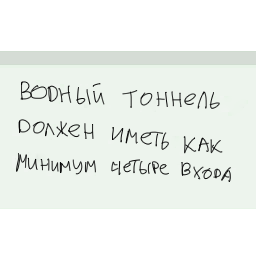 ВОДНЫЙ ТОННЕЛЬ
ДОЛЖЕН ИМЕТЬ КАК
МИНИМУМ ЧЕТЫРЕ ВХОДА